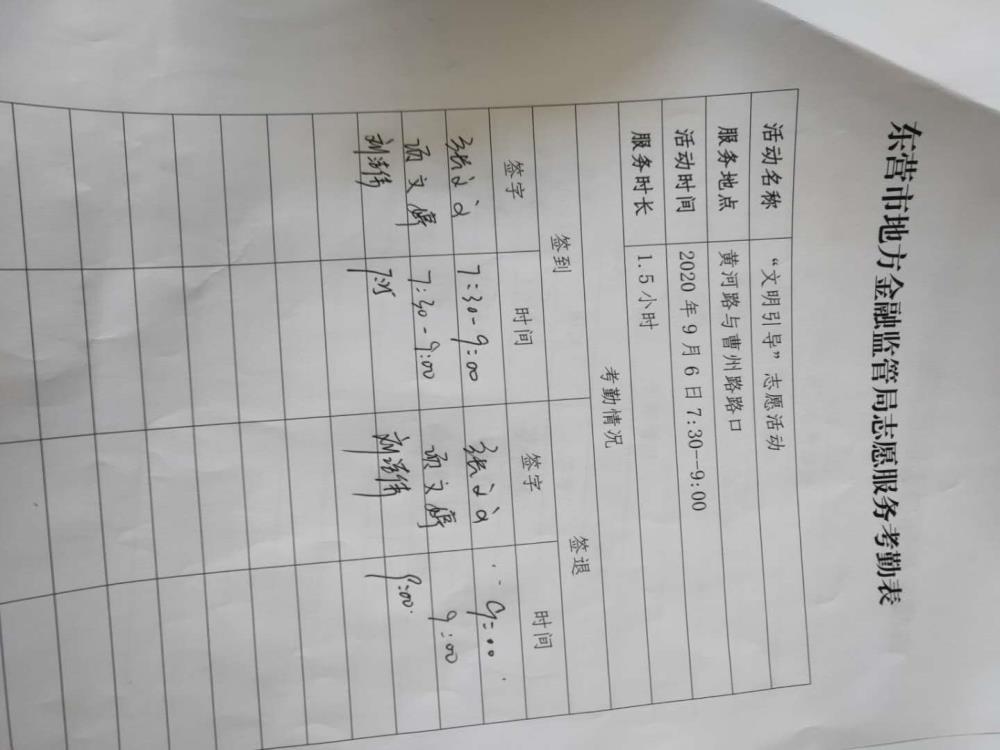 东营市地方金融监管局志愿服务考勤表
活动名称 “文明引导”志愿活动
服务地点 黄河路与曹州路路口
活动时间 2020年9月6日7:30--9:00
服务时长 1.5小时
考勤情况
签到 签退
签字 时间 签字 时间
7:30-9:00 9:00
文 7:30-9:00 文 9:00
刘 刘 9:00